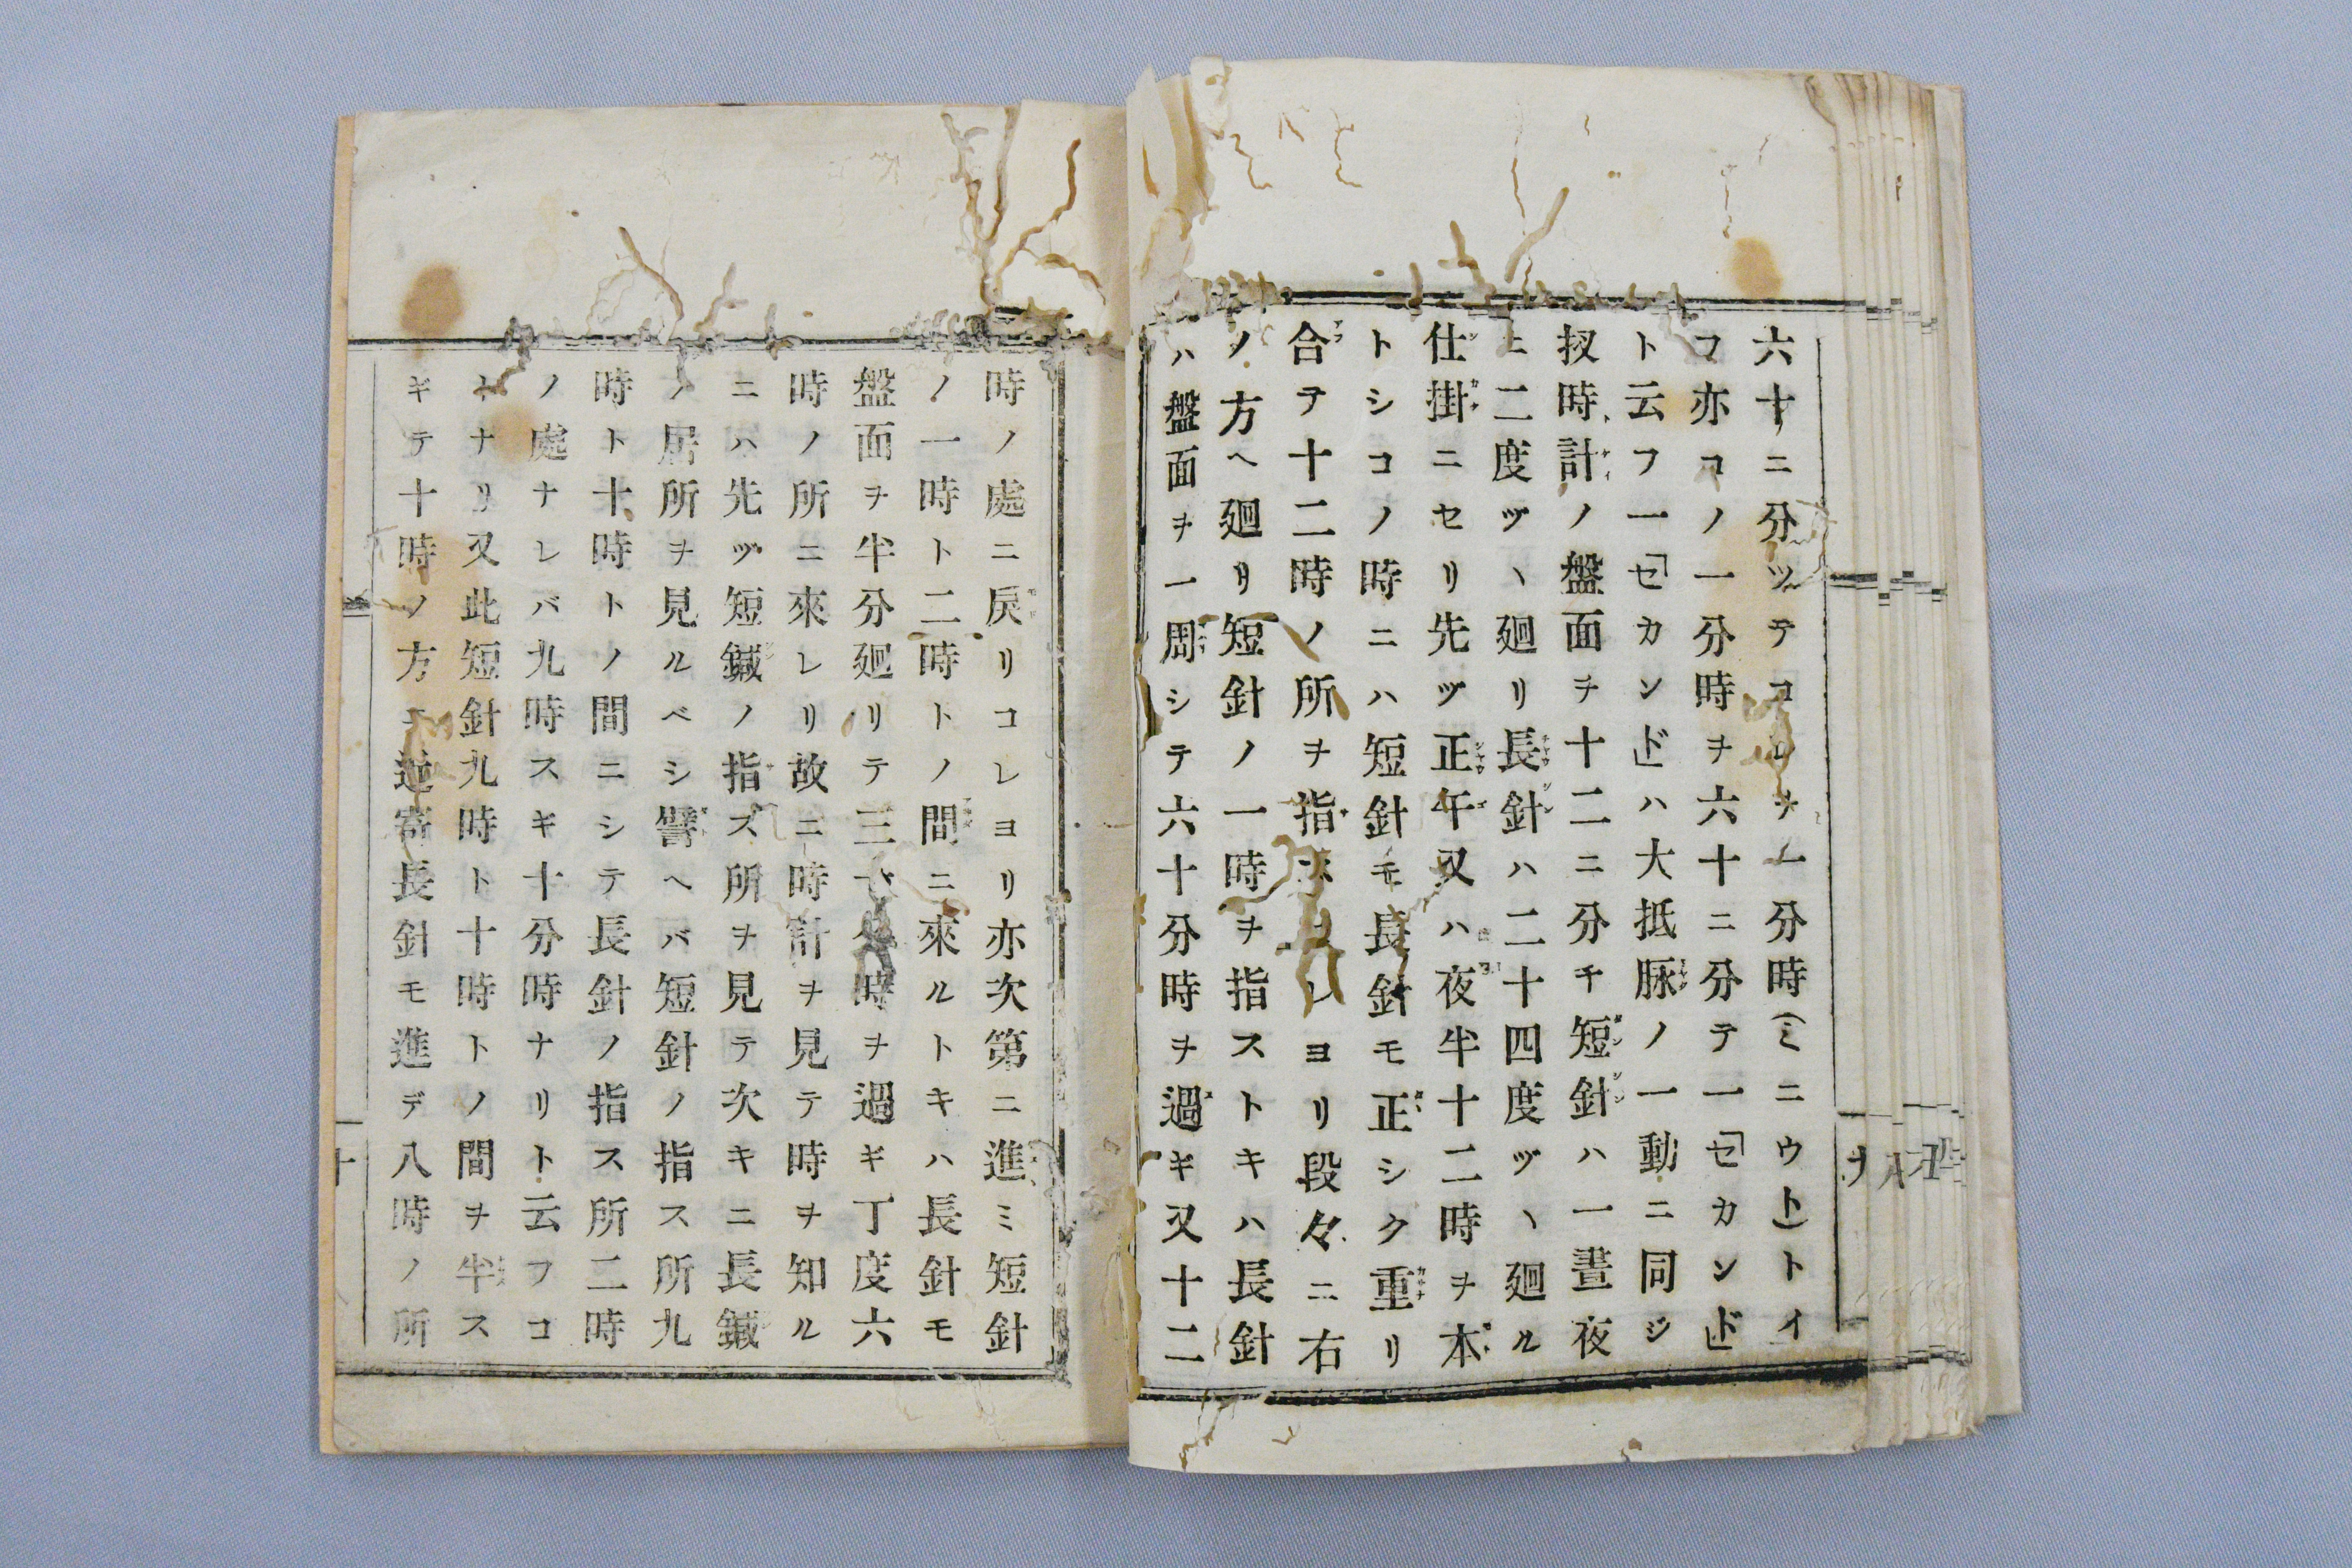 六十ニ分ツテコレヲ一分時(ミニウト)トイ
フ亦コノ一分時ヲ六十ニ分テ一「セカンド」
ト云フ一「セカンド」ハ大抵脉ノ一動ニ同ジ
扨時計ノ盤面ヲ十二ニ分チ短針ハ一晝夜
ニ二度ヅヽ廻リ長針ハ二十四度ヅヽ廻ル
仕掛ニセリ先ヅ正午又ハ夜半十二時ヲ本
トシコノ時ニハ短針モ長針モ正シク重リ
合テ十二時ノ所ヲ指スコレヨリ段々ニ右
ノ方ヘ廻リ短針ノ一時ヲ指ストキハ長針
ハ盤面ヲ一周シテ六十分時ヲ過ギ又十二
時ノ處ニ戻リコレヨリ亦次第ニ進ミ短針
ノ一時ト二時トノ間ニ來ルトキハ長針モ
盤面ヲ半分廻リテ三十分時ヲ過ギ丁度六
時ノ所ニ來レリ故ニ時計ヲ見テ時ヲ知ル
ニハ先ヅ短鍼ノ指ス所ヲ見テ次キニ長鍼
ノ居所ヲ見ルベシ譬ヘバ短針ノ指ス所九
時ト十時トノ間ニシテ長針ノ指ス所二時
ノ處ナレバ九時スギ十分時ナリト云フコ
トナリ又此短針九時ト十時トノ間ヲ半ス
ギテ十時ノ方ニ近寄長針モ進デ八時ノ所
十